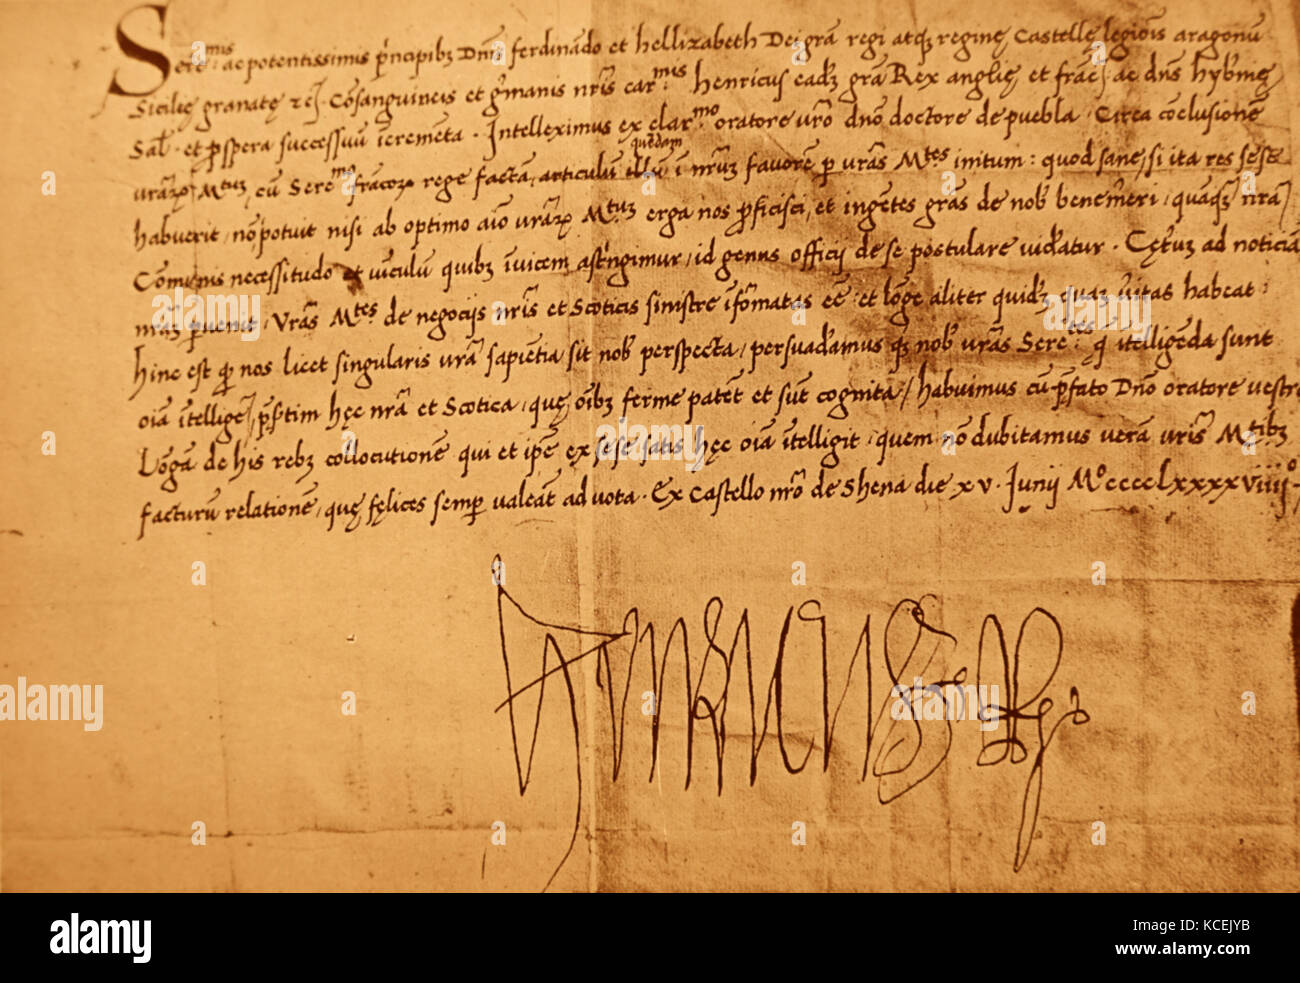 Sere^mis ac potentissimis prīncipib3 Dn̄is ferdinādo et hellizabeth Dei grā regi atq3 reginę Castellę legiōis aragonū
Sicilię granatę 2cʒ. Cōsanguineis et gͬmanis nr̄is car^mis henricus ead3 grā Rex anglię et frāc̄ʒ ac dn̄s hyb'nię
Sal' et prospera successuū īcremēta. Intelleximus ex clar^mo oratore vr̄o dn̄o doctore de puebla. Circa cōclusionē
vrār2 M^tuz cū Sere^mo frācor2 rege factā, articulū quēdam ī nr̄um favorē p vrās M^tes initum: quod sane, si ita res sese
habuerit, nō potuit nisi ab optimo aīo vrār2 M^tuz erga nos proficisci, et ingētes grās de nob' benem̄eri, quāq3 nrā
Cōmunis necessitudo et vīculū quib3 īvicem astrīgimur, id genus officij de se postulare vid'atur. Cętuz ad noticiā
nrāz p'venit, vrās M^tes de negocijs nr̄is et Scoticis sinistre īfo'matas eē, et lōge aliter quid3 quaz v'itas habeat:
hinc est q nos licet singularis vrā sapiētia sit nob' perspecta, persuad'amus q3 nob' vrās Sere^tes q ītelligēda sunt
oīa ītelligeʒ, p'stim hęc nrā et Scotica, quę oīb3 ferme patēt et sūt cognita, habuimus cū p'fato Dn̄o oratore vestro
Lōgā de his reb3 collocutionē qui et ip̄e ex sese satis hęc oīa ītelligit, quem nō dubitamus verā vr̄is M^tib3
facturū relationē, quę fęlices semp valeāt ad vota. Ex Castello nr̄o de Shena die xv. Junij M^o ccccLxxxxviiij^o.
Henricus R
alamy
Image ID: KCEJYB
www.alamy.com